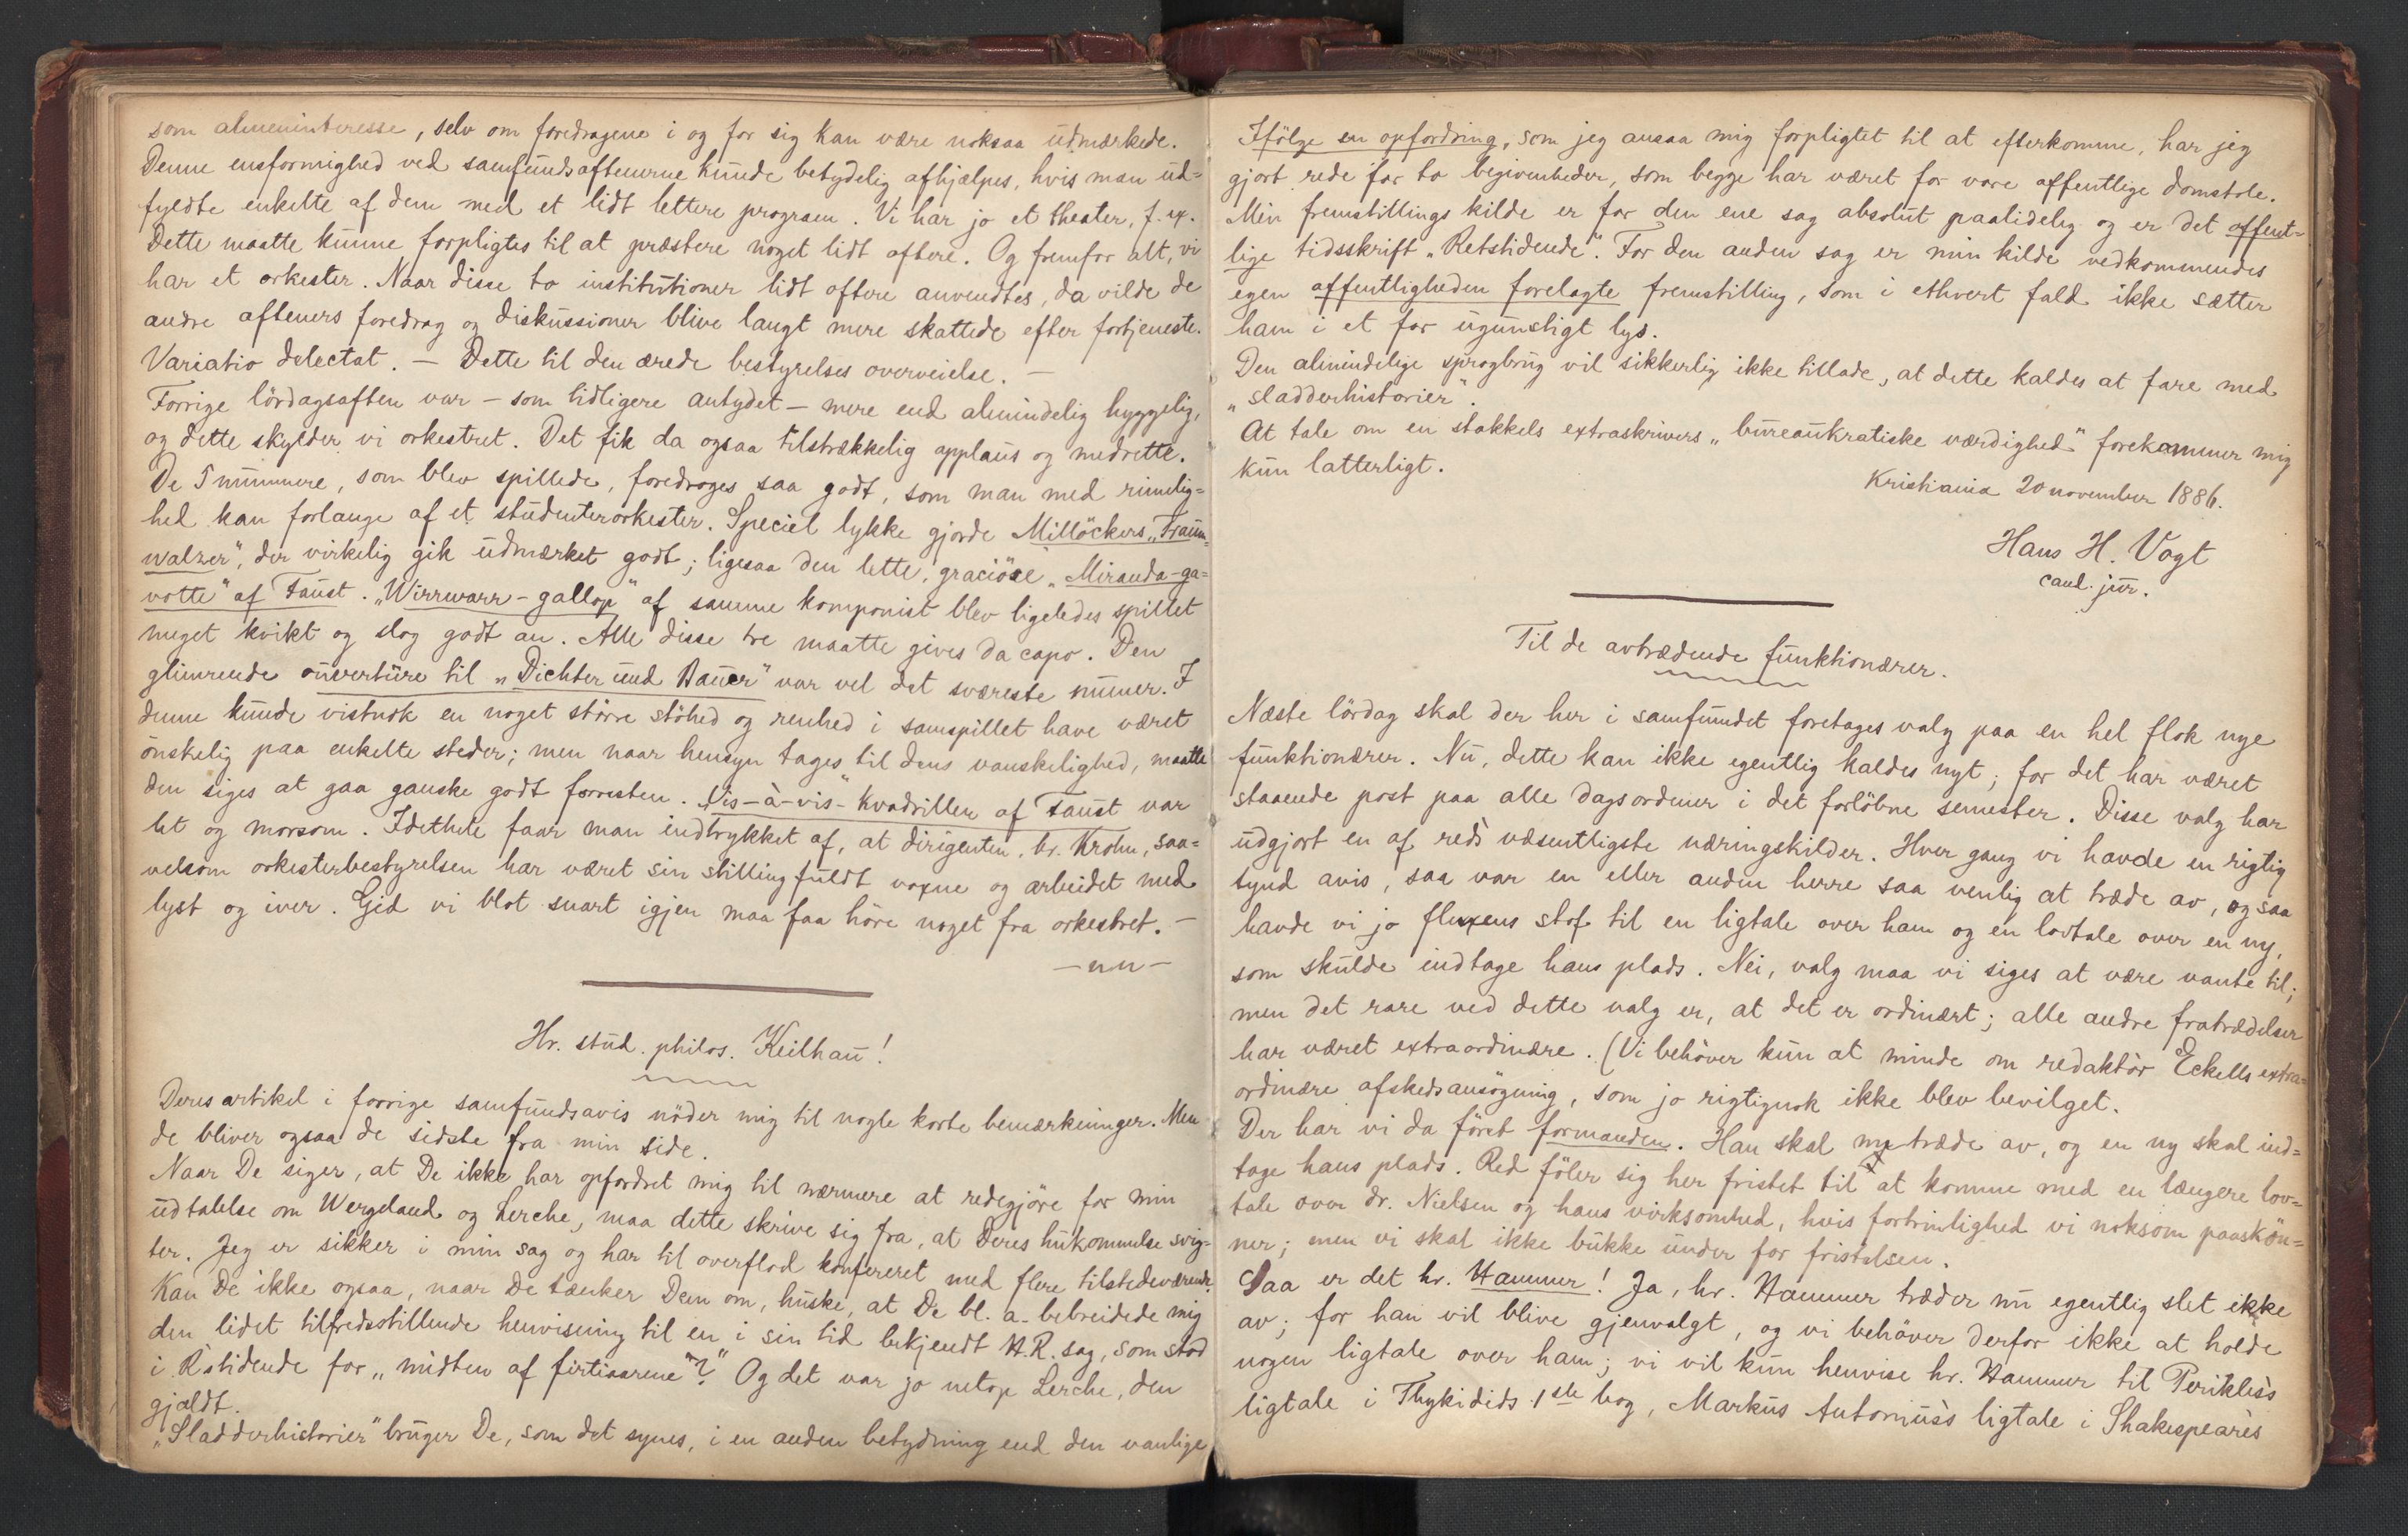 som almeninteresse, selv om foredragene i og for sig kan være noksaa udmærkede.
Denne ensformighed ved samfundsaftenerne kunde betydelig afhjælpes, hvis man ud=
fyldte enkelte af dem med et lidt lettere program. Vi har jo et theater, f. ex.
Dette maatte kunne forpligtes til at præstere noget lidt oftere. Og fremfor alt, vi
har et orkester. Naar disse to institutioner lidt oftere anvendtes, da vilde de
andre aftenes foredrag og diskussioner blive langt mere skattede efter fortjeneste.
Variatio delectat. — Dette til den ærede bestyrelses overveielse. —
Forrige lördagsaften var – som tidligere antydet – mere end almindelig hyggelig,
og dette skylder vi orkestret. Det fik da ogsaa tilstrækkelig applaus og medrette.
De 5 numere, som blev spillede, foredroges saa godt, som man med rimelig=
hed kan forlange af et studenterorkester. Speciel lykke gjorde Millöckers „Traum=
walzer", der virkelig gik udmærket godt; ligesaa den lette, graciöse „Miranda-ga=
votte" af Faust. „Wirrwarr-gallop" af samme komponist blev ligeledes spillet
meget kvikt og slog godt an. Alle disse tre maatte gives da capo. Den
glimrende ouverture til „Dichter und Bauer" var vel det sværeste numer. I
denne kunde vistnok en noget större stöhed og renhed i samspillet have været
önskelig paa enkelte steder; men naar hensyn tages til dens vanskelighed, maatte
den siges at gaa ganske godt forresten. „Vis-à-vis"-Kvadrillen af Faust var
let og morsom. Idethele faar man indtrykket af, at dirigenten, hr. Krohn, saa=
velsom orkesterbestyrelsen har været sin stilling fuldt voxne og arbeidet med
lyst og iver. Gid vi blot snart igjen maa faa höre noget fra orkestret. —
—nn—
Hr. stud. philos. Keilhau!
Deres artikel i forrige samfundsavis nöder mig til nogle korte bemærkninger. Men
de bliver ogsaa de sidste fra min side.
Naar De siger, at De ikke har opfordret mig til nærmere at redegjöre for min
udtalelse om Wergeland og Lerche, maa dette skrive sig fra, at Deres hukommelse svig=
ter. Jeg er sikker i min sag og har til overflod konfereret med flere tilstedeværende.
Kan De ikke ogsaa, naar De tænker Dem om, huske, at De bl. a. bebreidede mig
den lidet tilfredsstillende henvisning til en i sin tid bekjendt H.R. sag, som stod
i R'stidende for „midten af firtiaarene"? Og det var jo netop Lerche, den
gjældt.
„Sladderhistorier" bruger De, som det synes, i en anden betydning end den vanlige
Ifölge en opfordring, som jeg ansaa mig forpligtet til at efterkomme, har jeg
gjort rede for to begivenheder, som begge har været for vore offentlige domstole.
Min fremstillings kilde er for den ene sag absolut paalidelig og er det offent=
lige tidsskrift „Retstidende". For den anden sag er min kilde vedkommendes
egen offentligheden forelagte fremstilling, som i ethvert fald ikke sætter
ham i et for ugunstigt lys.
Den almindelige sprogbrug vil sikkerlig ikke tillade, at dette kaldes at fare med
„sladderhistorier".
At tale om en stakkels extraskrivers „bureaukratiske værdighed" forekommer mig
kun latterligt.
Kristiania 20 november 1886.
Hans H. Vogt
cand. jur.
Til de avtrædende funktionærer.
Næste lördag skal der her i samfundet foretages valg paa en hel flok nye
funktionærer. Nu, dette kan ikke egentlig kaldes nyt; for det har været
staaende post paa alle dagsordener i det forlöbne semester. Disse valg har
udgjort en af red's væsentligste næringskilder. Hver gang vi havde en rigtig
tynd avis, saa var en eller anden herre saa venlig at træde av, og saa
havde vi jo fluxens stof til en ligtale over ham og en lovtale over en ny,
som skulde indtage hans plads. Nei, valg maa vi siges at være vante til;
men det rare ved dette valg er, at det er ordinært; alle andre fratrædelser
har været extraordinære. (Vi behöver kun at minde om redaktör Eckells extra=
ordinære afskedsansögning, som jo rigtignok ikke blev bevilget.
Der har vi da föret formanden. Han skal træde av, og en ny skal ind=
tage hans plads. Red föler sig her fristet til at komme med en længere lov=
tale over dr. Nielsen og hans virksomhed, hvis fortrinlighed vi noksom paaskön=
ner; men vi skal ikke bukke under for fristelsen.
Saa er det hr. Hammer! Ja, hr. Hammer træder nu egentlig slet ikke
av; for han vil blive gjenvalgt, og vi behöver derfor ikke at holde
nogen ligtale over ham; vi vil kun henvise hr. Hammer til Perikles's
ligtale i Thykidids 1ste bog, Markus Antonius's ligtale i Shakespeare's